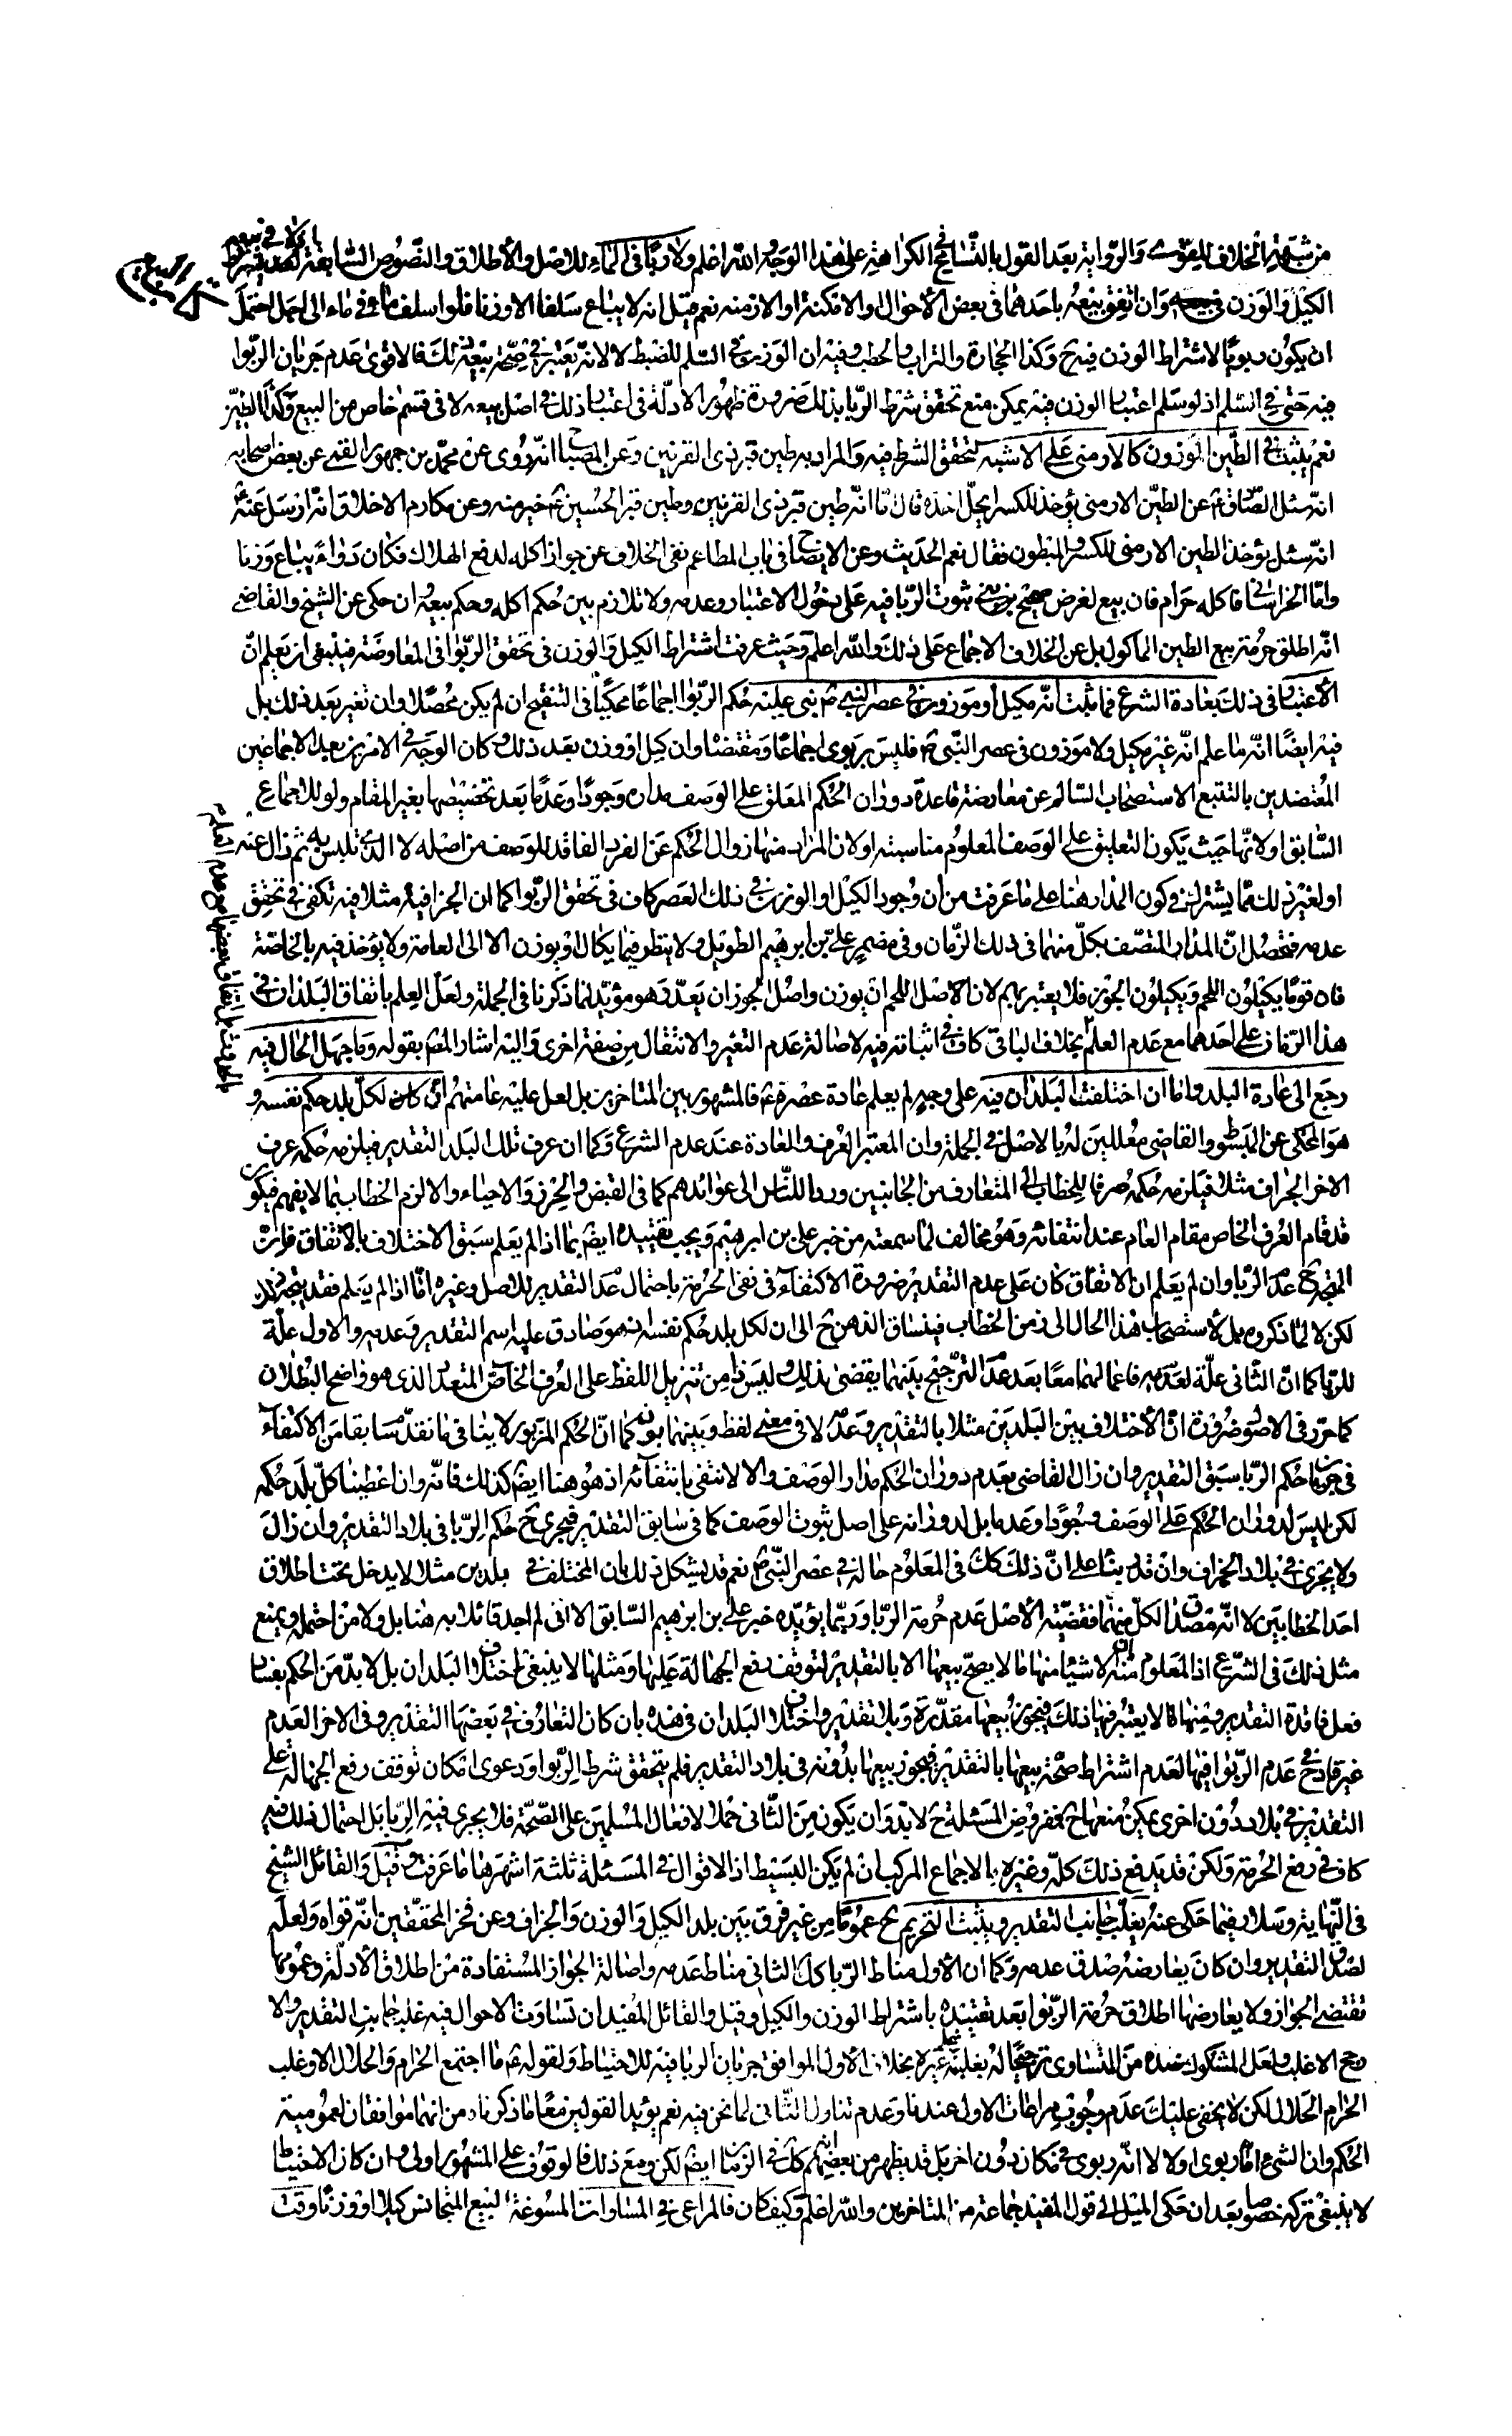 من شبهة الخلاف للفتوى والرواية بعد القول بالتسامح في الكراهة على هذا الوجه والله اعلم ولا ربا في الماء للاصل والأطلاق والنصوص السابقة لعدم اشتراط
الكيل والوزن في بيعه وان اتفق بيعه باحدهما في بعض الأحوال والامكنة او الازمنه نعم قيل انه لا يباع سلفا الا وزنا فلو اسلف ماء في ماء الى اجل احتمل
ان يكون ربويا لاشتراط الوزن فيه ح وكذا الحجارة والتراب والحطب وفيه ان الوزن في السلم للضبط لا لانه يعتبر في صحة بيعه ذلك فالاقوى عدم جريان الربوا
فيه حتى في السلم اذ لو سلم اعتبار الوزن فيه يمكن منع تحقق شرط الربا بذلك ضرورة ظهور الادلة في اعتبار ذلك في اصل بيعه لا في قسم خاص من البيع وكذا الطين
نعم يثبت في الطين الموزون كالارمنى على الاشبه لتحقق الشرط فيه والمراد به طين قبر ذى القرنين وعن المصباح انه روى عن محمد بن جمهور القمى عن بعض اصحابه
انه سئل الصادق ع عن الطين الارمنى يؤخذ للكسر ايحل اخذه قال لا اما انه طين قبر ذى القرنين وطين قبر الحسين ع خير منه وعن مكارم الاخلاق انه ارسل عنه
انه سئل يؤخذ الطين الارمنى للكسر والمبطون فقال نعم الحديث وعن الايضاح في باب المطاعم نفى الخلاف عن جواز اكله لدفع الهلاك فكان دواء يباع وزنا
واما الخراسانى فاكله حرام فان بيع لغرض صحيح ثبوت الربا فيه على دخول الاعتبار وعدمه ولا تلازم بين حكم اكله وحكم بيعه وان حكى عن الشيخ والقاضى
انه اطلق حرمة بيع الطين الماكول بل عن الخلاف الاجماع على ذلك والله اعلم وحيث عرفت اشتراط الكيل والوزن في تحقق الربوا في المعاوضة فينبغى ان يعلم ان
الأعتبار في ذلك بعادة الشرع فما ثبت انه مكيل او موزون في عصر النبى ص بنى عليه حكم الربوا اجماعا محكيا في التنقيح ان لم يكن محصلا وان تغير بعد ذلك بل
فيه ايضا انه ما علم انه غير مكيل ولا موزون في عصر النبى ص فليس بربوى اجماعا ومقتضاه وان كيل او وزن بعد ذلك وكان الوجه في الامرين بعد الاجماعين
المعتضدين بالتتبع الاستصحاب السالم عن معارضة قاعدة دوران الحكم المعلق على الوصف مداره وجودا وعدما بعد تخصيصها بغير المقام ولو للاجماع
السابق او لانها حيث يكون التعليق على الوصف المعلوم مناسبته او لان المراد منها زوال الحكم عن الفرد الفاقد للوصف من اصله لا الذى تلبس به ثم زال عنه
او لغير ذلك مما يشترك في كون المدار هنا على ما عرفت من ان وجود الكيل او الوزن في ذلك العصر كاف في تحقق الربوا كما ان الجزافية مثلا فيه تكفى في تحقق
عدمه فتحصل ان المدار المتصف بكل منهما في ذلك الزمان وفي مضمر على بن ابرهيم الطويل ولا ينظر فيما يكال او يوزن الا الى العامة ولا يؤخذ فيه بالخاصة
فان قوما يكيلون اللحم ويكيلون الجوز فلا يعتبر بهم لان الاصل اللحم ان يوزن واصل الجوز ان يعد وهو مؤيد لما ذكرنا في الجملة ولعل العلم باتفاق البلدان في
هذا الزمان على احدهما مع عدم العلم بخلاف السابق كاف في اثباته فيه لاصالة عدم التغير والانتقال من صفة اخرى واليه اشار المصنف بقوله وما جهل الحال فيه
رجع الى عادة البلد واما ان اختلفت البلدان فيه على وجه لم يعلم عادة عصره ع فالمشهور بين المتاخرين بل لعل عليه عامتهم انه كان لكل بلد حكم نفسه و
هو المحكى عن المبسوط والقاضى معللين له بالاصل في الجملة وان المعتبر العرف والعادة عند عدم الشرع وكما ان عرف تلك البلد التقدير فيلزمه حكمه عرف
الاخر الجزاف مثلا فيلزمه حكمه صرفا للخطاب الى المتعارف من الجانبين وردا للناس الى عوائدهم كما في القبض والحرز والاحياء والا لزم الخطاب بما لا يفهم فيكون
قد قام العرف الخاص مقام العام عند انتفائه وهو مخالف لما سمعته من خبر على بن ابرهيم ويجب تقييده ايضا بما اذا لم يعلم سبق الاختلاف بالاتفاق فان
المتجه ح عدم الربا وان لم يعلم ان الاتفاق كان على عدم التقدير ضرورة الاكتفاء في نفى الحرمة باحتمال عدم التقدير للاصل وغيره اما اذا لم يعلم فقد يتجه
لكن لا لما ذكروه بل لأستصحاب هذا الحال الى زمن الخطاب فينساق الذهن ح الى ان لكل بلد حكم نفسه هو صادق عليه اسم التقدير وعدمه والاول علة
للربا كما ان الثانى علة لعدمه فاعمالهما معا بعد عدم الترجيح بينهما يقضى بذلك وليس ذا من تنزيل اللفظ على العرف الخاص المتعدد الذى هو واضح البطلان
كما حرر في الاصول ضرورة ان الأختلاف بين البلدين مثلا بالتقدير وعدمه لا في معنى لفظ وبينهما بون كما ان الحكم المزبور لا ينافى ما تقدم سابقا من الاكتفاء
في جريان حكم الربا سبق التقدير وان زال القاضى بعدم دوران الحكم مدار الوصف والا لانتفى بانتفائه اذ هو هنا ايضا كذلك فانه وان اعطينا كل بلد حكمه
لكن ليس لدوران الحكم على الوصف وجودا وعدما بل لدورانه على اصل ثبوت الوصف كما في سابق التقدير فيجرى ح حكم الربا في بلاد التقدير وان زال
ولا يجرى في بلاد الجزاف وان قدر بناء على ان ذلك كك في المعلوم حاله في عصر النبى ص نعم قد يشكل ذلك بان المختلف في بلدين مثلا لا يدخل تحت اطلاق
احد الخطابين لا انه مصداق لكل منهما فقضية الأصل عدم حرمة الربا وربما يؤيده خبر على بن ابرهيم السابق الا انى لم اجد قائلا به هنا بل ولا من احتمله ويمنع
مثل ذلك في الشرع اذ المعلوم منه ان الاشياء منها ما لا يصح بيعها الا بالتقدير لتوقف رفع الجهالة عليها ومثلها لا ينبغى اختلاف البلدان بل لا بد من الحكم بفساد
فعل فاقدة التقدير ومنها ما لا يعتبر فيها ذلك فيجوز بيعها مقدرة وبلا تقدير واختلاف البلدان في هذه بان كان التعارف في بعضها التقدير وفي الاخر العدم
غير قادح في عدم الربوا فيها لعدم اشتراط صحة بيعها بالتقدير فيجوز بيعها بدونه في بلاد التقدير فلم يتحقق شرط الربوا ودعوى امكان توقف رفع الجهالة على
التقدير في بلاد دون اخرى يمكن منعها ح ففروض المسئلة ح لا بد وان يكون من الثانى حملا لافعال المسلمين على الصحة فلا يجرى فيه الربا بل احتمال ذلك فيه
كاف في رفع الحرمة ولكن قد يدفع ذلك كله وغيره بالاجماع المركب ان لم يكن البسيط اذ الاقوال في المسئلة ثلثة اشهرها ما عرفت وقيل والقائل الشيخ
في النهاية وسلار فيما حكى عنه يغلب جانب التقدير ويثبت التحريم ح عموما من غير فرق بين بلد الكيل والوزن والجزاف وعن فخر المحققين انه قواه ولعله
لصدق التقدير وان كان يعارضه صدق عدمه وكما ان الأول مناط الربا كك الثانى مناط عدمه واصالة الجواز المستفادة من اطلاق الأدلة وعمومها
تقتضى الجواز ولا يعارضها اطلاق حرمة الربوا بعد تقييده باشتراط الوزن والكيل وقيل والقائل المفيد ان تساوت الاحوال فيه غلب جانب التقدير والا
رجح الاغلب ولعل المشكوك عنده من المتساوى ترجيحا له بغلبة غيره بخلاف الأول الموافق جريان الربا فيه للاحتياط ولقوله ع ما اجتمع الحرام والحلال الا وغلب
الحرام الحلال لكن لا يخفى عليك عدم وجوب مراعات الاول عندنا وعدم تناول الثانى لما نحن فيه نعم يؤيد القولين معا ما ذكرناه من انهما موافقان لعمومية
الحكم وان الشىء اما ربوى اولا لا انه ربوى في مكان دون اخر بل قد يظهر من بعضهم انه كك في الزمان ايضا لكن ومع ذلك فالوقوف على المشهور اولى وان كان الاحتياط
لا ينبغى تركه خصوصا بعد ان حكى الميل الى قول المفيد جماعة من المتاخرين والله اعلم وكيف كان فالمراعى في المساوات المسوغة لبيع المتجانس كيلا او وزنا وقت